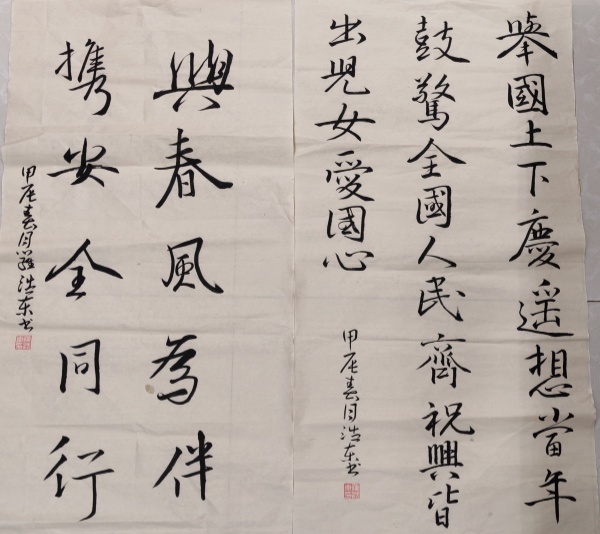 舉國上下慶遥想當年
鼓驚全國人民齊祝興皆
出兒女愛國心
甲辰春月浩東書
與春風為伴
携安全同行
甲辰春月羅浩東书